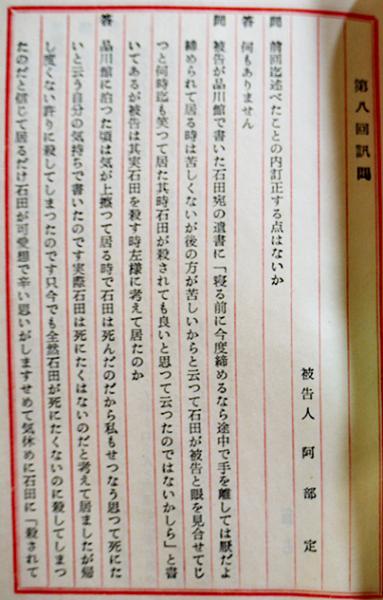 第八回訊問
被告人 阿部定
問 前回迄述べたことの内訂正する点はないか
答 何もありません
問 被告が品川館で書いた石田宛の遺書に「寝る前に今度締めるなら途中で手を離しては厭だよ
締められて居る時は苦しくないが後の方が苦しいからと云つて石田が被告と眼を見合せてじ
つと何時迄も笑つて居た其時石田が殺されても良いと思つて云つたのではないかしら」と書
いてあるが被告は其実石田を殺す時左様に考えて居たのか
答 品川館に泊つた頃は気が上擦つて居る時で石田は死んだのだから私もせつなう思つて死にた
いと云う自分の気持ちで書いたのです実際石田は死にたくはないのだと考えて居ましたが帰
し度くない許りに殺してしまつたのです只今でも全然石田が死にたくないのに殺してしまつ
たのだと信じて居るだけ石田が可愛想で辛い思いがしますせめて気休めに石田に「殺されて